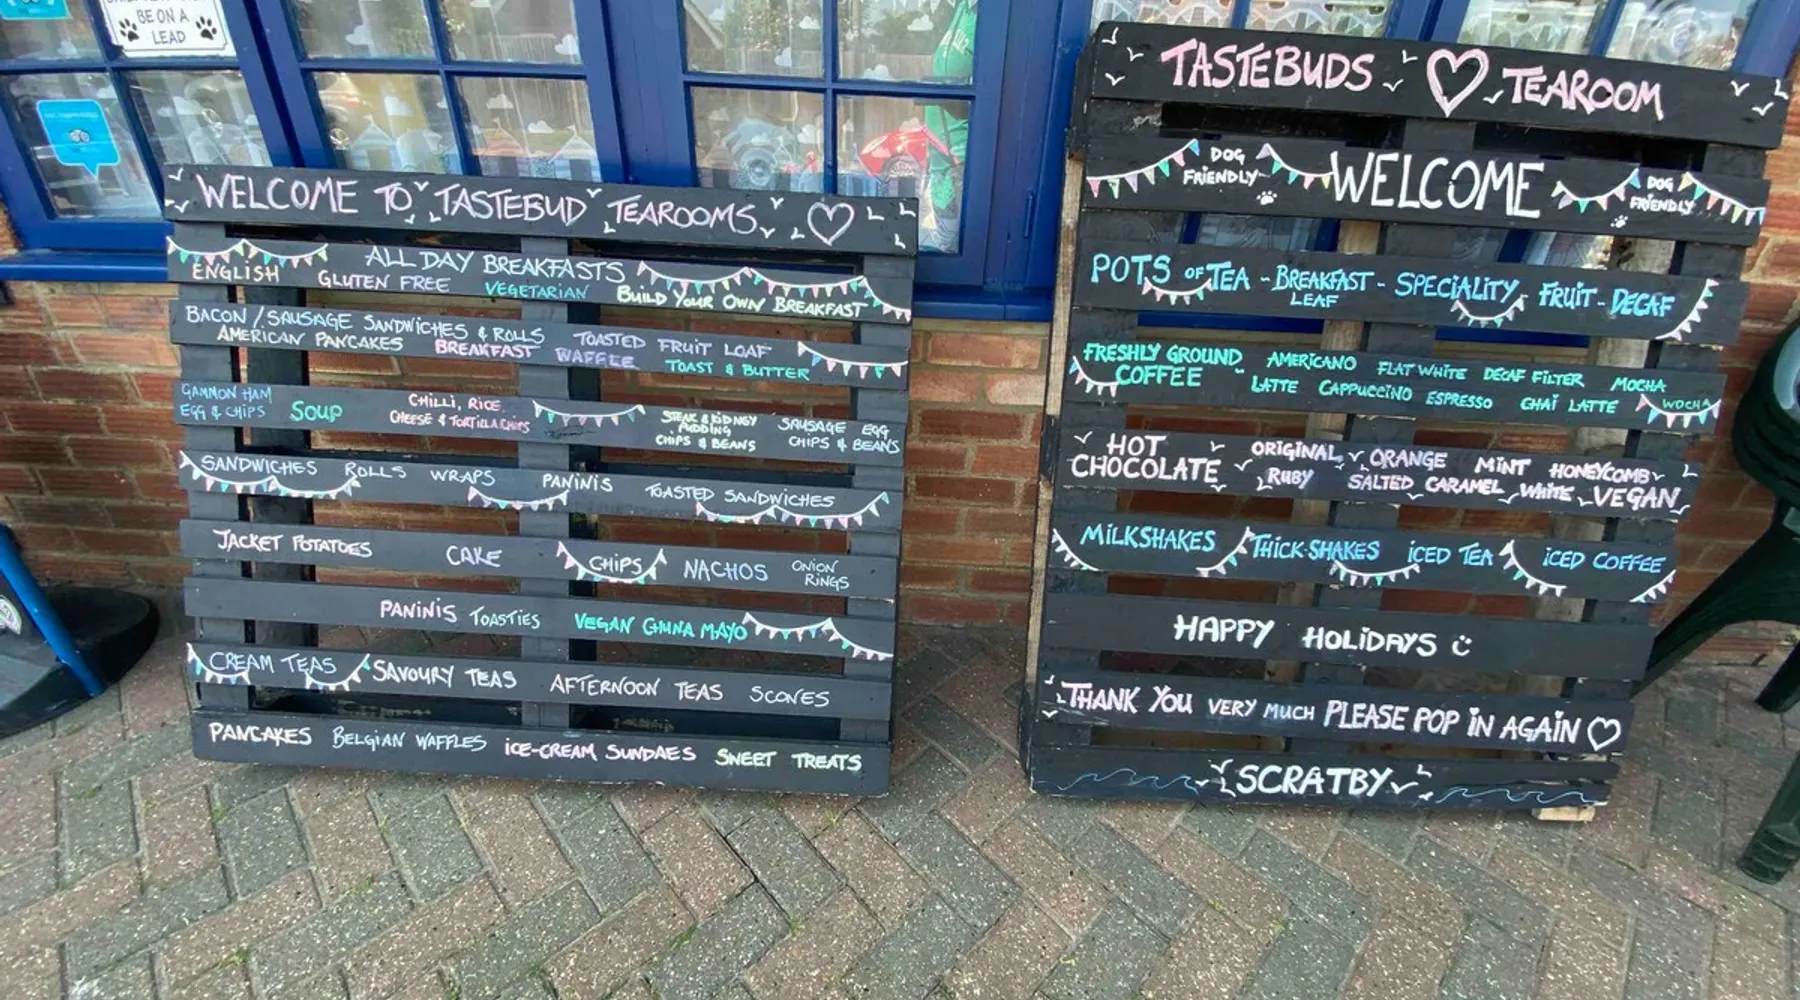 BE ON A
LEAD
WELCOME TO TASTEBUD TEAROOMS
ALL DAY BREAKFASTS
ENGLISH GLUTEN FREE VEGETARIAN BUILD YOUR OWN BREAKFAST
BACON/SAUSAGE SANDWICHES & ROLLS TOASTED FRUIT LOAF
AMERICAN PANCAKES BREAKFAST WAFFLE TOAST & BUTTER
GAMMON HAM
EGG & CHIPS
SOUP
CHILLI, RICE
CHEESE & TORTILLA CHIPS
STEAK & KIDNEY
PUDDING
CHIPS & BEANS
SAUSAGE EGG
CHIPS & BEANS
SANDWICHES ROLLS WRAPS PANINIS TOASTED SANDWICHES
JACKET POTATOES CAKE CHIPS NACHOS ONION
RINGS
PANINIS TOASTIES VEGAN CHUNA MAYO
CREAM TEAS SAVOURY TEAS AFTERNOON TEAS SCONES
PANCAKES BELGIAN WAFFLES ICE-CREAM SUNDAES SWEET TREATS
TASTEBUDS TEAROOM
DOG
FRIENDLY
WELCOME
DOG
FRIENDLY
POTS OF TEA - BREAKFAST - SPECIALITY FRUIT - DECAF
LEAF
FRESHLY GROUND
COFFEE
AMERICANO FLAT WHITE DECAF FILTER MOCHA
LATTE CAPPUCCINO ESPRESSO CHAI LATTE WOCHA
HOT
CHOCOLATE
ORIGINAL ORANGE MINT HONEYCOMB
RUBY SALTED CARAMEL WHITE VEGAN
MILKSHAKES THICK-SHAKES ICED TEA ICED COFFEE
HAPPY HOLIDAYS
THANK YOU VERY MUCH PLEASE POP IN AGAIN
SCRATBY